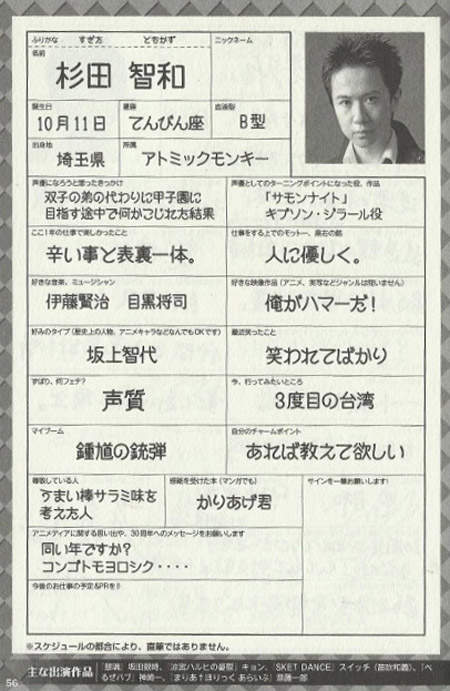 ふりがな すぎた ともかず
ニックネーム
名前
杉田 智和
誕生日
10月11日
星座
てんびん座
血液型
B型
出身地
埼玉県
所属
アトミックモンキー
声優になろうと思ったきっかけ
双子の弟の代わりに甲子園に
目指す途中で何かこじれた結果
声優としてのターニングポイントになった役、作品
「サモンナイト」
ギブソン・ジラール役
ここ1年の仕事で楽しかったこと
辛い事と表裏一体。
仕事をする上でのモットー、座右の銘
人に優しく。
好きな音楽、ミュージシャン
伊藤賢治 目黒将司
好きな映像作品(アニメ、実写などジャンルは問いません)
俺がハマーだ!
好みのタイプ(歴史上の人物、アニメキャラなどなんでもOKです)
坂上智代
最近笑ったこと
笑われてばかり
ずばり、何フェチ?
声質
今、行ってみたいところ
3度目の台湾
マイブーム
鍾馗の銃弾
自分のチャームポイント
あれば教えて欲しい
尊敬している人
うまい棒サラミ味を
考えた人
感銘を受けた本(マンガでも)
かりあげ君
サインを一筆お願いします!
アニメディアに関する思い出や、30周年へのメッセージをお願いします
同い年ですか?
コンゴトモヨロシク・・・・
今後のお仕事の予定&PRを!!
※スケジュールの都合により、直筆ではありません。
主な出演作品
『銀魂』坂田銀時、『涼宮ハルヒの憂鬱』キョン、『SKET DANCE』スイッチ(笛吹和義)、『べ
るぜバブ』神崎一、『まりあ†ほりっく あらいぶ』
56